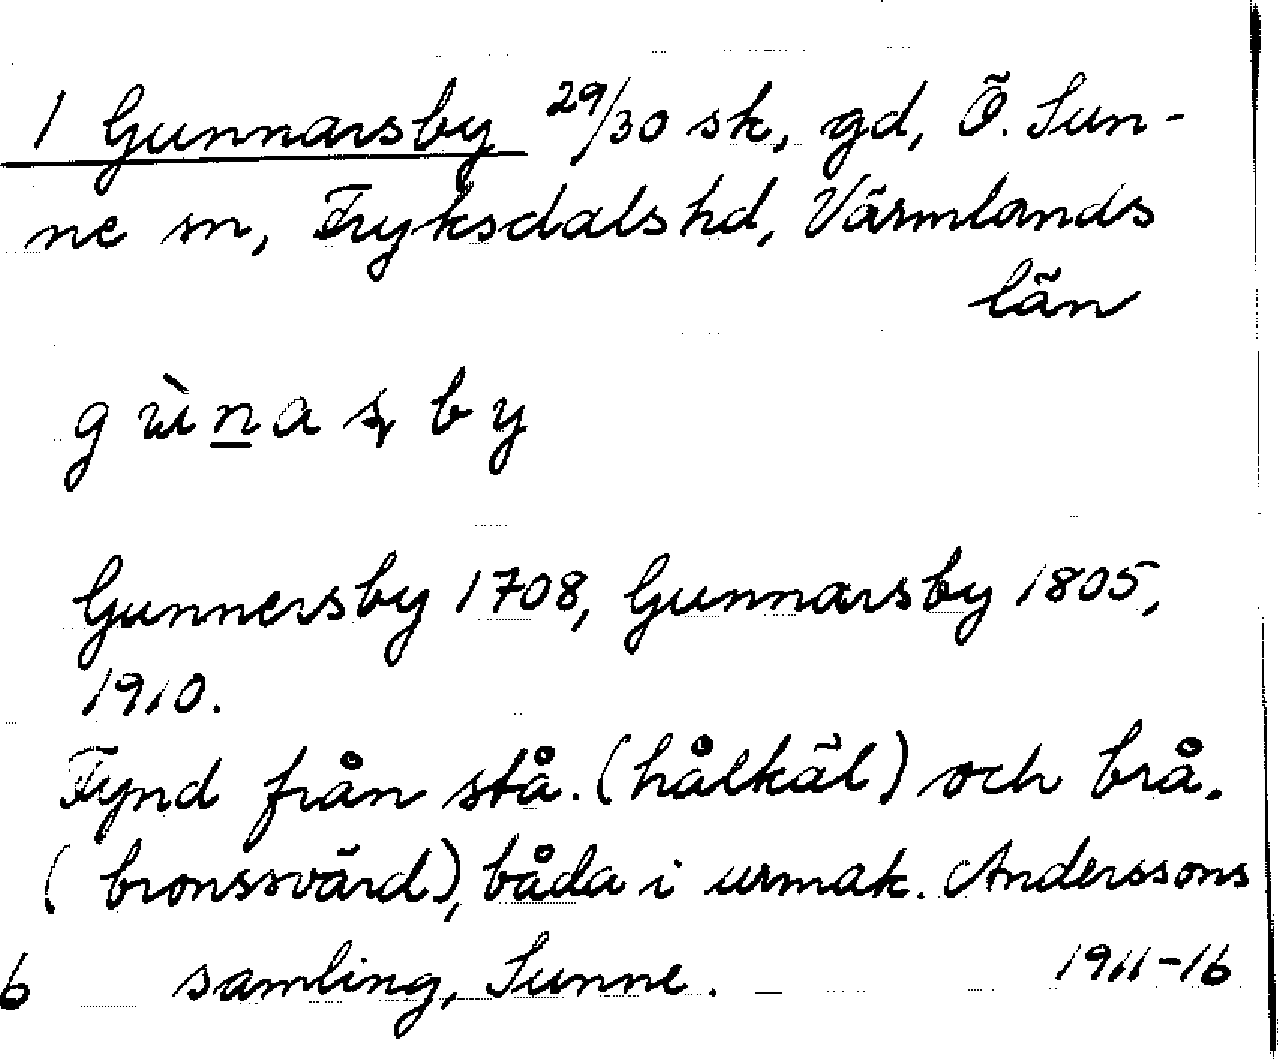 1 Gunnarsby 29/30 sk, gd, Ö. Sun-
ne sn, Fryksdals hd, Värmlands
län
gùn̲aʂby
Gunnersby 1708, Gunnarsby 1805,
1910.
Fynd från stå. (hålkäl) och brå.
(bronssvärd), båda i urmak. Anderssons
6 samling, Sunne. 1911-16